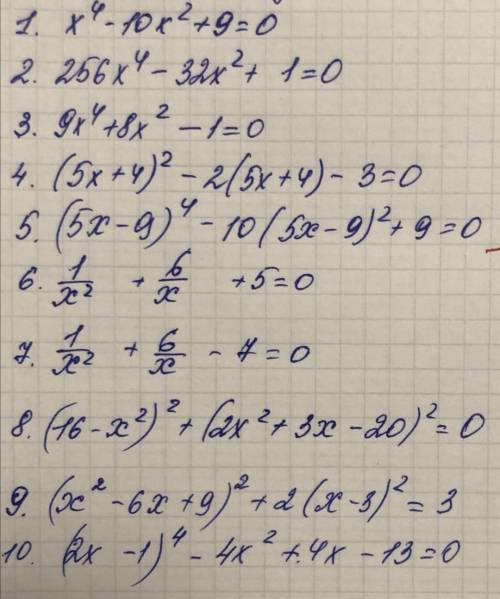 1. x⁴ - 10x² + 9 = 0
2. 256x⁴ - 32x² + 1 = 0
3. 9x⁴ + 8x² - 1 = 0
4. (5x + 4)² - 2(5x + 4) - 3 = 0
5. (5x - 9)⁴ - 10(5x - 9)² + 9 = 0
6. 1/x² + 6/x + 5 = 0
7. 1/x² + 6/x - 7 = 0
8. (16 - x²)² + (2x² + 3x - 20)² = 0
9. (x² - 6x + 9)² + 2(x - 3)² = 3
10. (2x - 1)⁴ - 4x² + 4x - 13 = 0